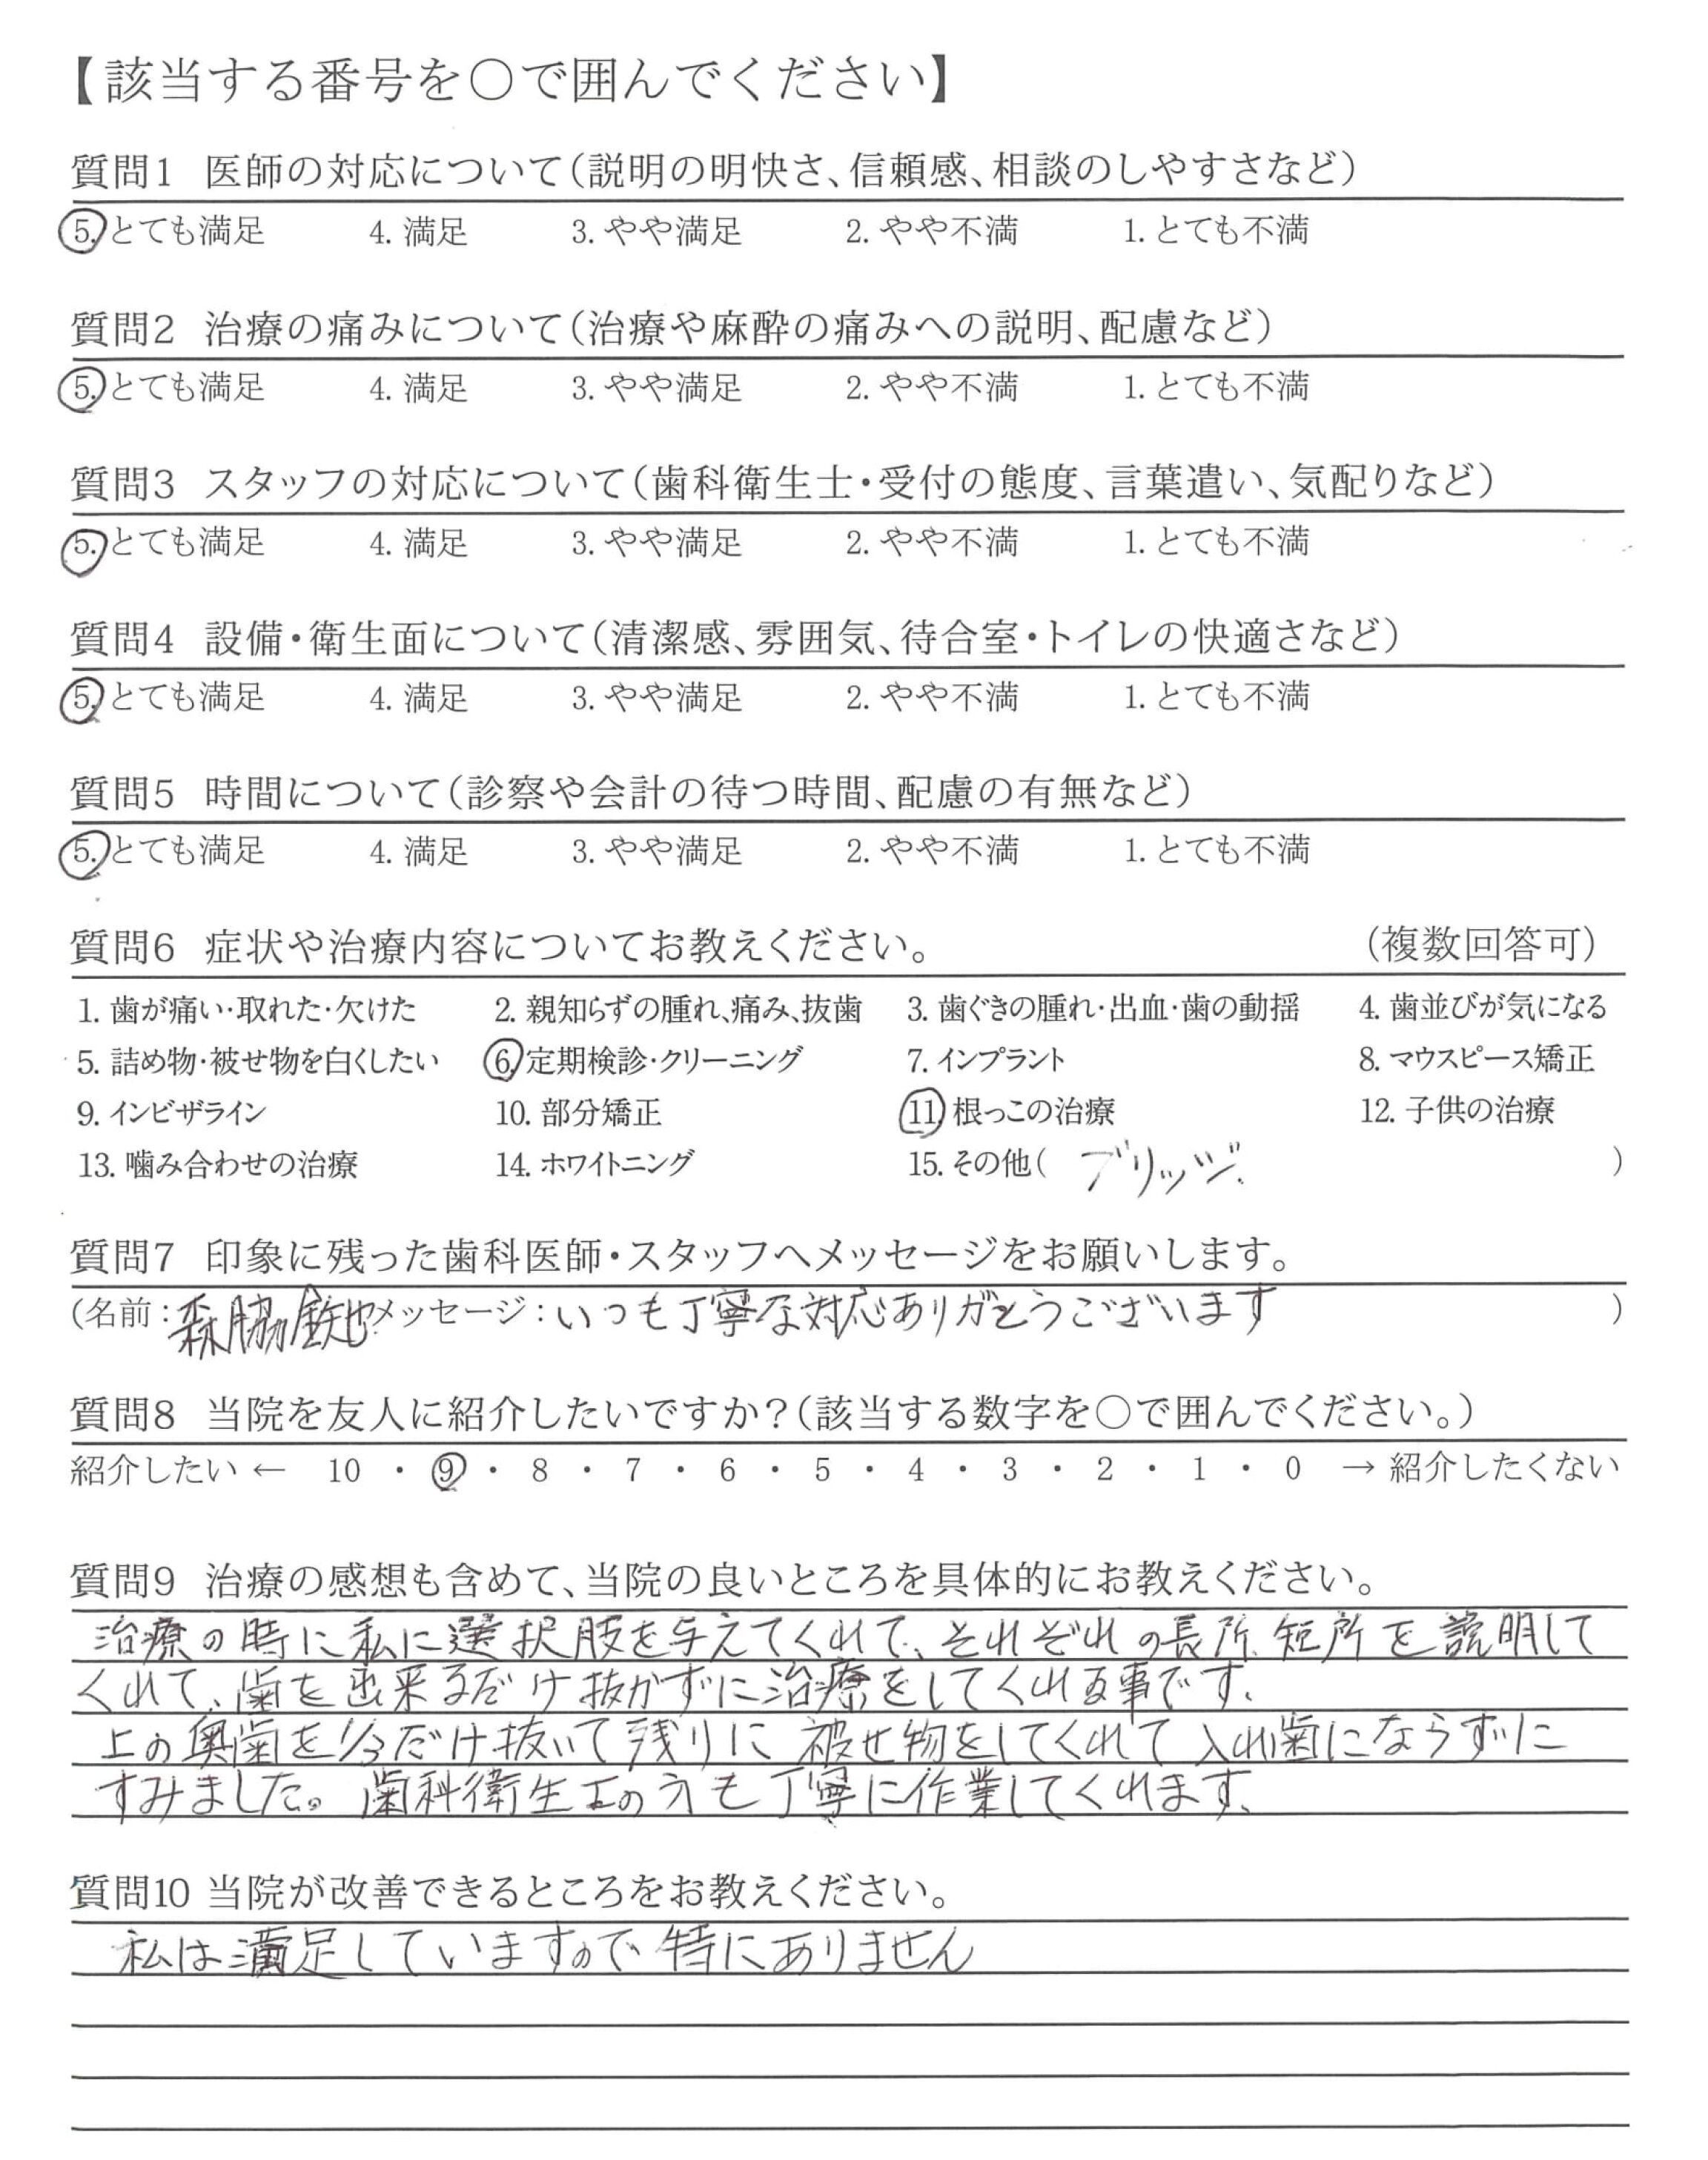 【該当する番号を○で囲んでください】
質問1 医師の対応について(説明の明快さ、信頼感、相談のしやすさなど)
5. とても満足 4. 満足 3. やや満足 2. やや不満 1. とても不満
質問2 治療の痛みについて(治療や麻酔の痛みへの説明、配慮など)
5. とても満足 4. 満足 3. やや満足 2. やや不満 1. とても不満
質問3 スタッフの対応について(歯科衛生士・受付の態度、言葉遣い、気配りなど)
5. とても満足 4. 満足 3. やや満足 2. やや不満 1. とても不満
質問4 設備・衛生面について(清潔感、雰囲気、待合室・トイレの快適さなど)
5. とても満足 4. 満足 3. やや満足 2. やや不満 1. とても不満
質問5 時間について(診察や会計の待つ時間、配慮の有無など)
5. とても満足 4. 満足 3. やや満足 2. やや不満 1. とても不満
質問6 症状や治療内容についてお教えください。 (複数回答可)
1. 歯が痛い・取れた・欠けた 2. 親知らずの腫れ、痛み、抜歯 3. 歯ぐきの腫れ・出血・歯の動揺 4. 歯並びが気になる
5. 詰め物・被せ物を白くしたい 6. 定期検診・クリーニング 7. インプラント 8. マウスピース矯正
9. インビザライン 10. 部分矯正 11. 根っこの治療 12. 子供の治療
13. 噛み合わせの治療 14. ホワイトニング 15. その他( ブリッジ. )
質問7 印象に残った歯科医師・スタッフへメッセージをお願いします。
(名前:森脇 メッセージ:いつも丁寧な対応ありがとうございます )
質問8 当院を友人に紹介したいですか?(該当する数字を○で囲んでください。)
紹介したい ← 10 ・ 9 ・ 8 ・ 7 ・ 6 ・ 5 ・ 4 ・ 3 ・ 2 ・ 1 ・ 0 → 紹介したくない
質問9 治療の感想も含めて、当院の良いところを具体的にお教えください。
治療の時に私に選択肢を与えてくれて、それぞれの長所、短所を説明して
くれて、歯を出来るだけ抜かずに治療をしてくれる事です、
上の奥歯を1/3だけ抜いて残りに被せ物をしてくれて入れ歯にならずに
すみました。歯科衛生士の方も丁寧に作業してくれます、
質問10 当院が改善できるところをお教えください。
私は満足していますので特にありません